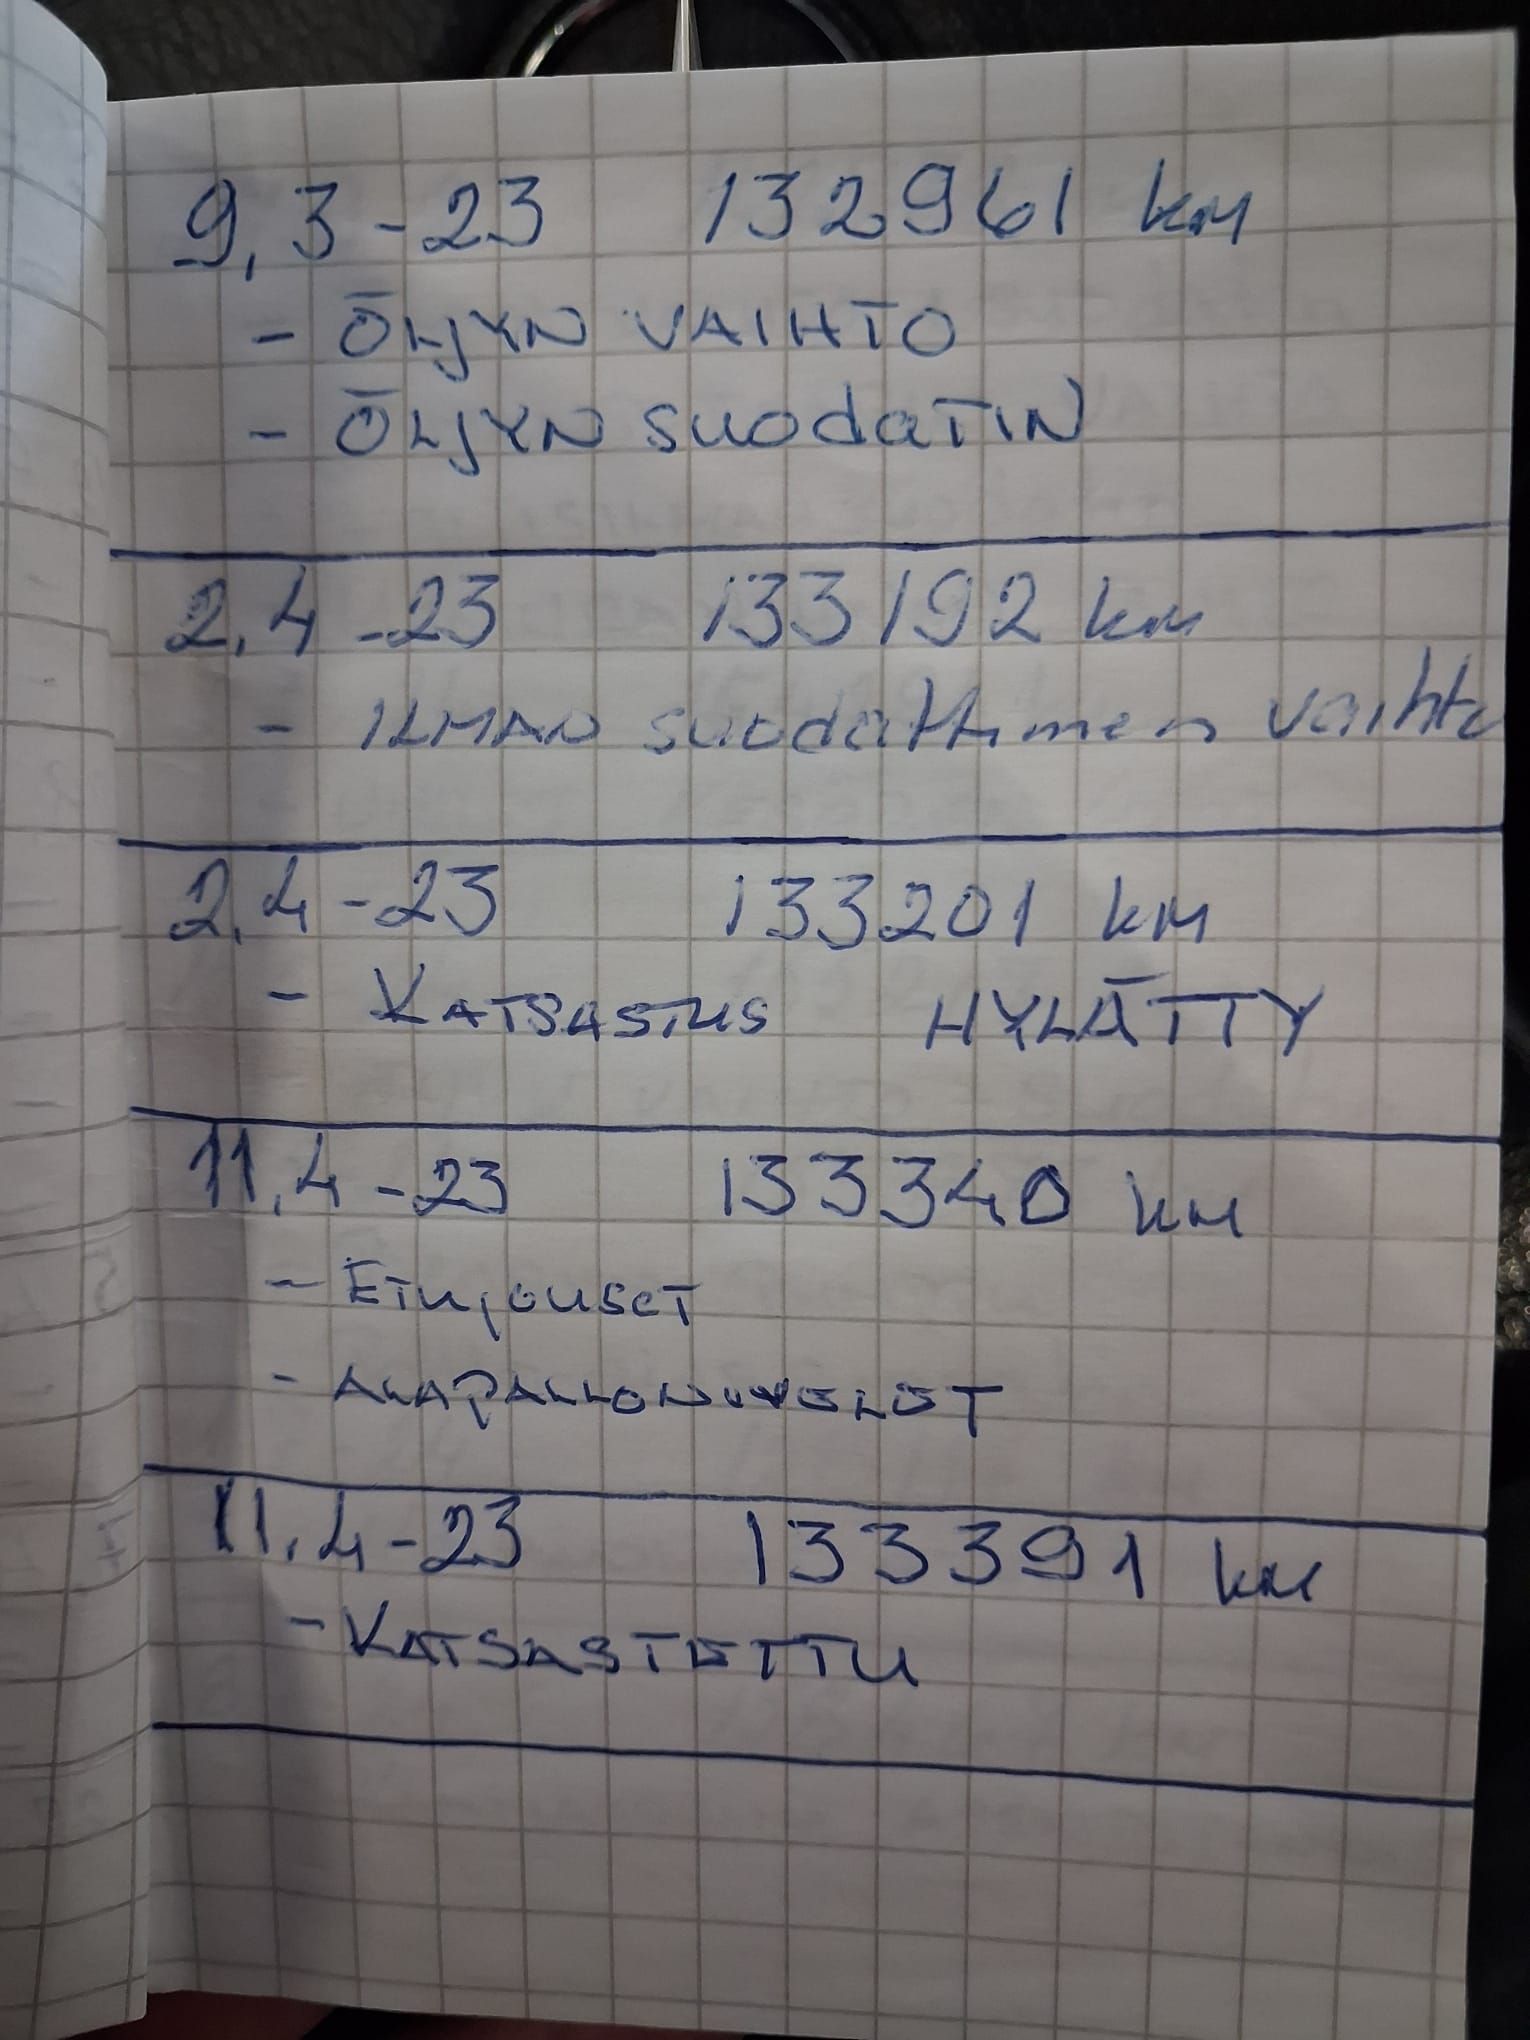 9.3-23 132961 km
- ÖLJYN VAIHTO
- ÖLJYN suodaTIN
2.4-23 133192 km
- ILMAN suodattimen vaihto
2.4-23 133201 km
- KATSASTUS HYLÄTTY
11.4-23 133340 km
- ETUJOUSET
- ALAPALLONIVELET
11.4-23 133391 km
- KATSASTETTU